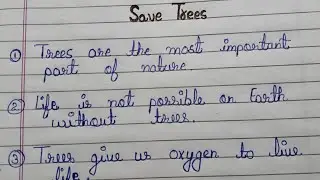 Save Trees
① Trees are the most important
part of nature
② Life is not possible on Earth
without trees.
③ Trees give us oxygen to live
life.